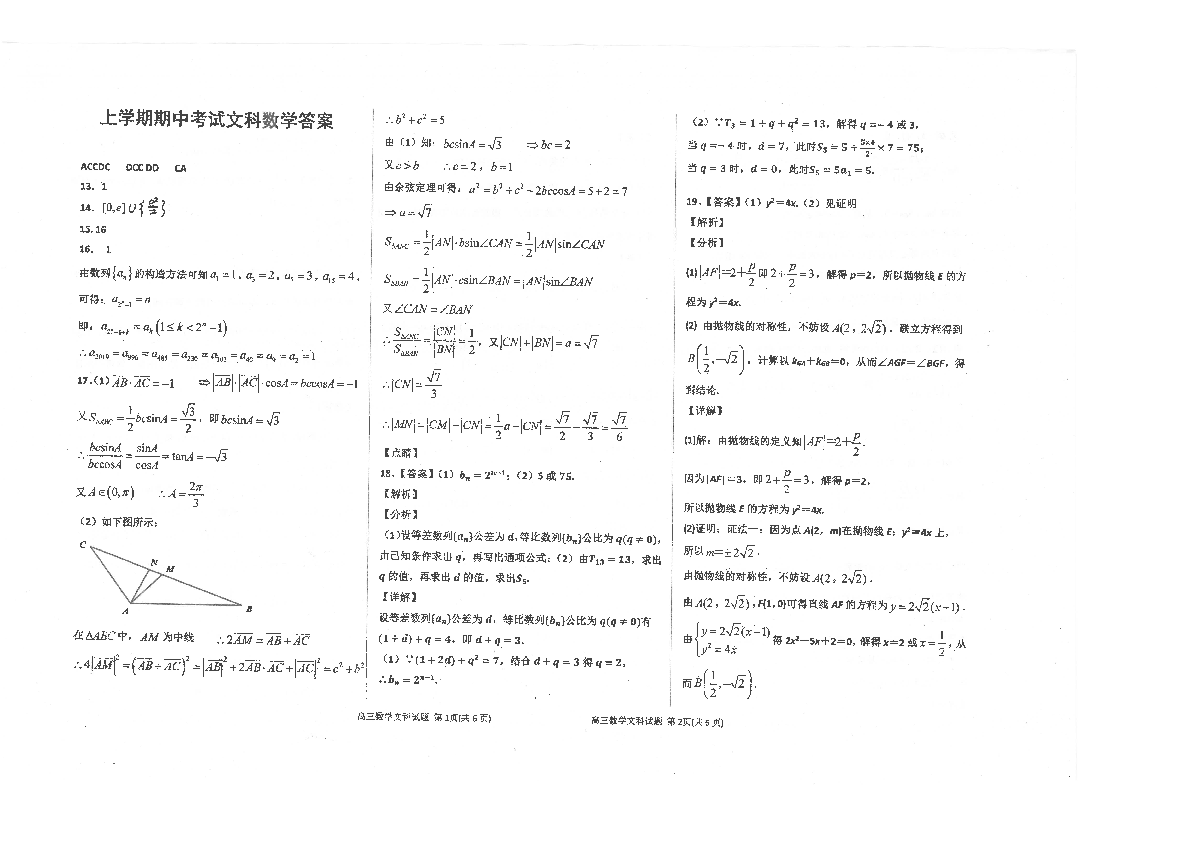 上学期期中考试文科数学答案
ACCDC DCCDD CA
13. 1
14. [0,e]∪{e²/2}
15. 16
16. 1
由数列{aₙ}的构造方法可知a₁=1，a₃=2，a₇=3，a₁₅=4，
可得：a_{2ⁿ-1}=n
即：a_{2ⁿ-1+k}=a_k(1≤k<2ⁿ-1)
17.(1) AB·AC=-1 ⇒|AB|·|AC|·cosA=bccosA=-1
又S△ABC=1/2 bcsinA=√3/2，即bcsinA=√3
∴bcsinA/bccosA=sinA/cosA=tanA=-√3
又A∈(0,π) ∴A=2π/3
（2）如下图所示：
C N M A B
在△ABC中，AM为中线 ∴2AM=AB+AC
∴4|AM|²=(AB+AC)²=|AB|²+2AB·AC+|AC|²=c²+b²
∴b²+c²=5
由（1）知：bcsinA=√3 ⇒bc=2
又c>b ∴c=2，b=1
由余弦定理可得：a²=b²+c²-2bccosA=5+2=7
⇒a=√7
S△ANC=1/2|AN|·bsin∠CAN=1/2|AN|sin∠CAN
S△BAN=1/2|AN|·csin∠BAN=|AN|sin∠BAN
又∠CAN=∠BAN
∴S△ANC/S△BAN=|CN|/|BN|=1/2，又|CN|+|BN|=a=√7
∴|CN|=√7/3
∴|MN|=|CM|-|CN|=1/2 a-|CN|=√7/2-√7/3=√7/6
【点睛】
【解析】
【分析】
(1)设等差数列{aₙ}公差为d，等比数列{bₙ}公比为q(q≠0)，
由已知条件求出q，再写出通项公式；（2）由T₁₃=13，求出
q的值，再求出d的值，求出S₅.
【详解】
设等差数列{aₙ}公差为d，等比数列{bₙ}公比为q(q≠0)有
(1+d)+q=4，即d+q=3.
（1）∵(1+2d)+q²=7，结合d+q=3得q=2，
∴bₙ=2ⁿ⁻¹.
（2）∵T₃=1+q+q²=13，解得q=-4或3，
当q=-4时，d=7，此时S₅=5+5×4/2×7=75；
当q=3时，d=0，此时S₅=5a₁=5.
19、【答案】（1）y²=4x.（2）见证明
【解析】
【分析】
(1)|AF|=2+p/2即2+p/2=3，解得p=2，所以抛物线E的方
程为y²=4x.
(2) 由抛物线的对称性，不妨设A(2，2√2)，联立方程得到
B(1/2,-√2)，计算以k_GA+k_GB=0，从而∠AGF=∠BGF，得
到结论.
【详解】
(1)解：由抛物线的定义知|AF|=2+p/2.
因为|AF|=3，即2+p/2=3，解得p=2，
所以抛物线E的方程为y²=4x.
(2)证明：证法一：因为点A(2，m)在抛物线E：y²=4x上，
所以m=±2√2.
由抛物线的对称性，不妨设A(2，2√2).
由A(2，2√2)，F(1,0)可得直线AF的方程为y=2√2(x-1).
由{y=2√2(x-1) y²=4x 得2x²-5x+2=0，解得x=2或x=1/2，从
而B(1/2,-√2).
高三数学文科试题 第1页(共6页)
高三数学文科试题 第2页(共6页)